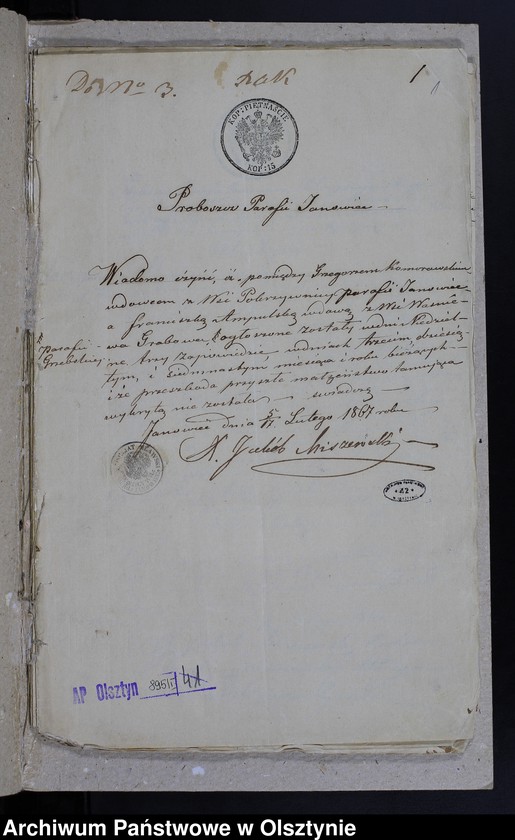 Do No 3.
Rok
1
KOP: PIĘTNAŚCIE
KOP: 15
Proboszcz Parafii Janowiec
Wiadomo czyni, iż pomiędzy Grzegorzem Komorowskim
wdowcem z Wsi parafii Janowiec
a Franciszką Ampulską wdową z Wsi
wa Grabowa, ogłoszone zostały w dni Niedziel-
parafii
Grzebskiej
ne trzy zapowiedzie, w dniach trzecim, dziesią-
tym, i siedmnastym miesiąca i roku bieżących
i że przeszkoda przyszłe małżeństwo tamująca
wykrytą nie została świadczę
Janowiec dnia Lutego 1867 roku
X. Jakób
AP Olsztyn 895/I/41
Archiwum Państwowe w Olsztynie